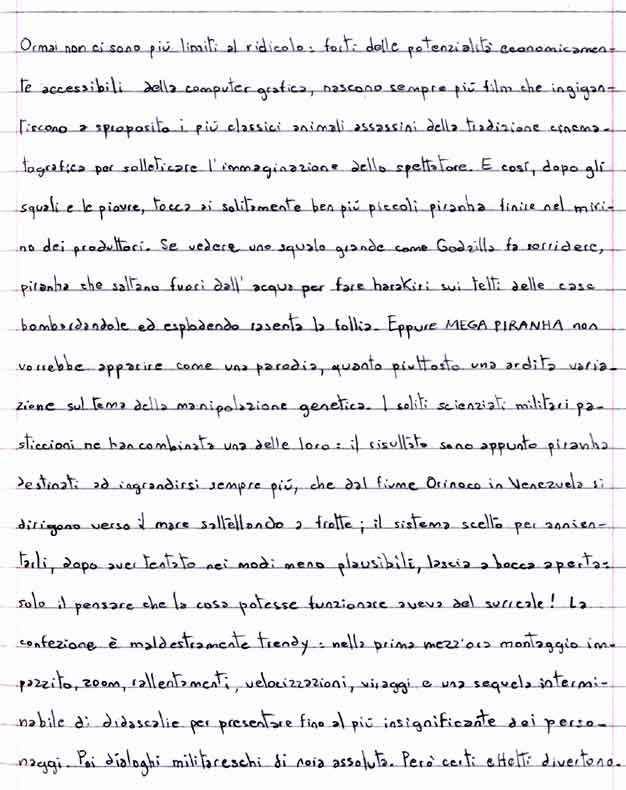 Ormai non ci sono più limiti al ridicolo: forti delle potenzialità economicamen-
te accessibili della computer grafica, nascono sempre più film che ingigan-
tiscono a sproposito i più classici animali assassini della tradizione cinema-
tografica per solleticare l'immaginazione dello spettatore. E così, dopo gli
squali e le piovre, tocca ai solitamente ben più piccoli piranha finire nel miri-
no dei produttori. Se vedere uno squalo grande come Godzilla fa sorridere,
piranha che saltano fuori dall'acqua per fare harakiri sui tetti delle case
bombardandole ed esplodendo rasenta la follia. Eppure MEGA PIRANHA non
vorrebbe apparire come una parodia, quanto piuttosto una ardita varia-
zione sul tema della manipolazione genetica. I soliti scienziati militari pa-
sticcioni ne han combinata una delle loro: il risultato sono appunto piranha
destinati ad ingrandirsi sempre più, che dal fiume Orinoco in Venezuela si
dirigono verso il mare saltellando a frotte; il sistema scelto per annien-
tarli, dopo aver tentato nei modi meno plausibili, lascia a bocca aperta:
solo il pensare che la cosa potesse funzionare aveva del surreale! La
confezione è maldestramente trendy: nella prima mezz'ora montaggio im-
pazzito, zoom, rallentamenti, velocizzazioni, viraggi e una sequela intermi-
nabile di didascalie per presentare fino al più insignificante dei perso-
naggi. Poi dialoghi militareschi di noia assoluta. Però certi effetti divertono.